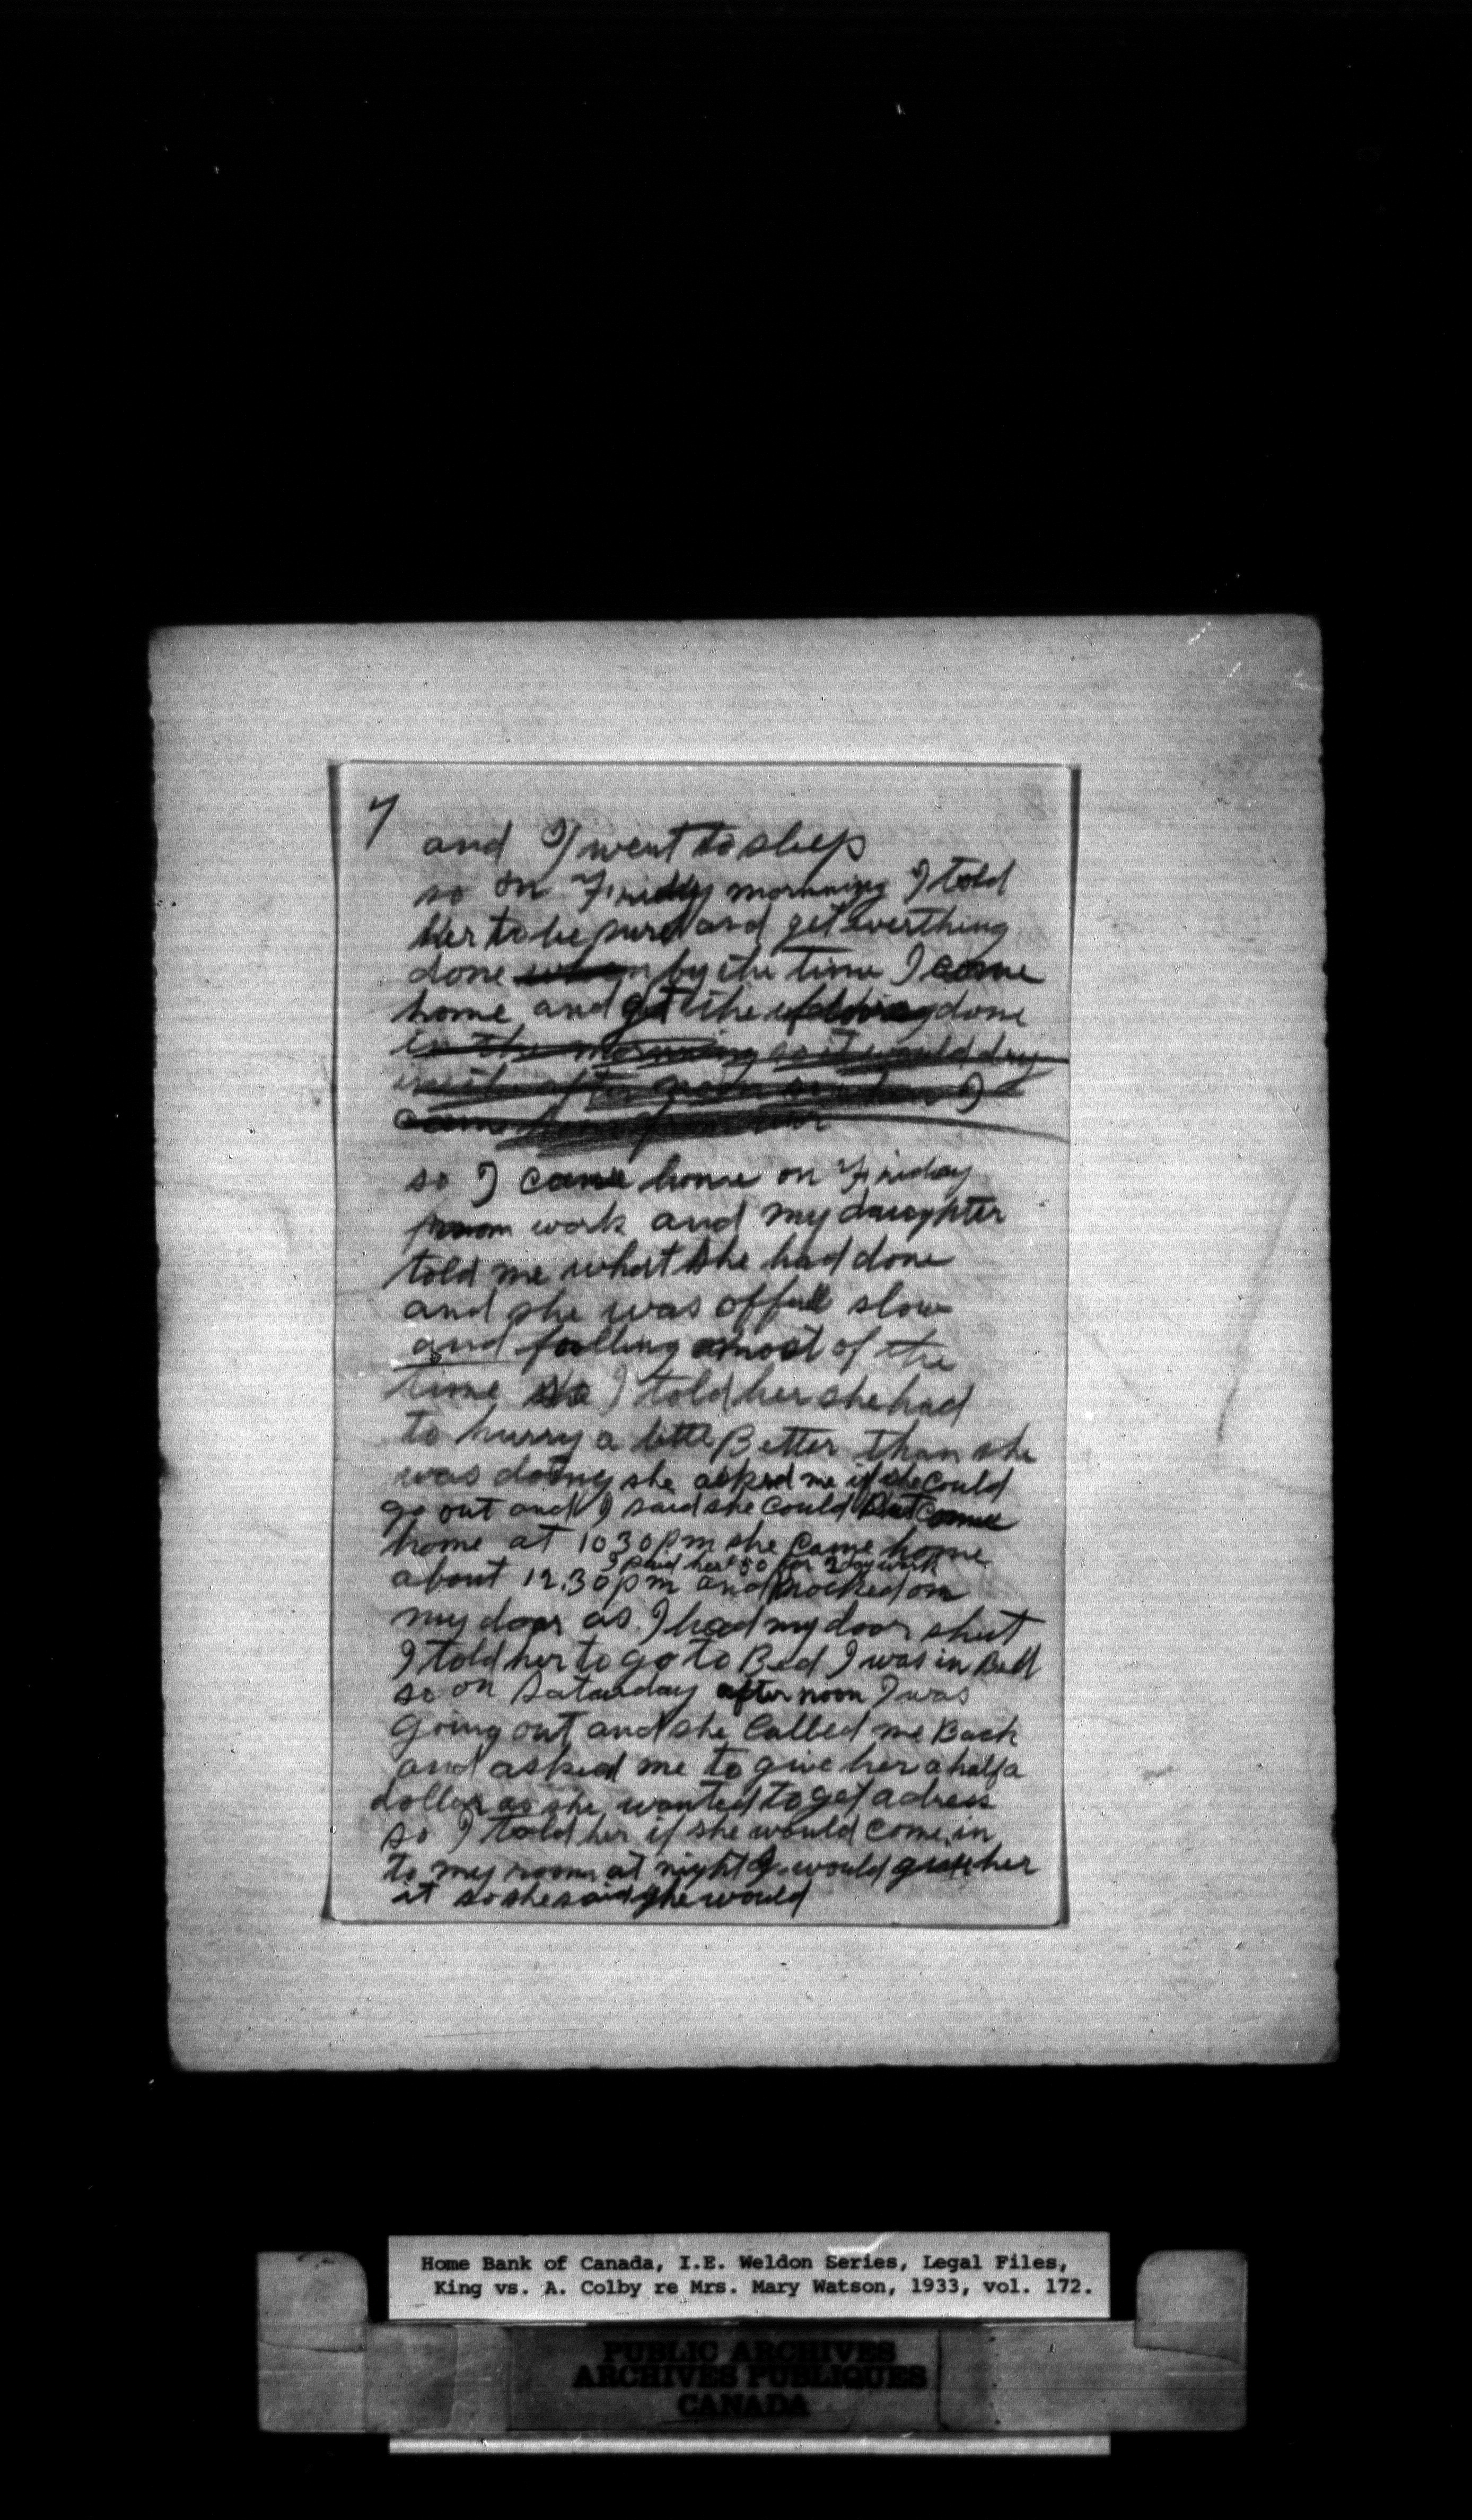 7
and I went to sleep
so on Friddy mornning I told
her to be pure and get everthing
done by the time I come
home and get the done
in the morning as it would dry
I
so I came home on Friday
from work and my daughter
told me what she had done
and she was offull slow
and foolling most of the
time so I told her she had
to hurry a little Better than she
was doing she asked me if she could
go out and I said she could But come
home at 10 30 pm she came home
I paid her 50 for 2 day work
about 12.30 pm and knocked on
my door as I had my door shut
I told her to go to Bed I was in Bed
so on Saturday after noon I was
going out and she Called me Back
and asked me to give her a half a
dollar as she wanted to get a dress
so I told her if she would come in
to my room at night I would give her
it so she said she would
Home Bank of Canada, I.E. Weldon Series, Legal Files,
King vs. A. Colby re Mrs. Mary Watson, 1933, vol. 172.
PUBLIC ARCHIVES
ARCHIVES PUBLIQUES
CANADA